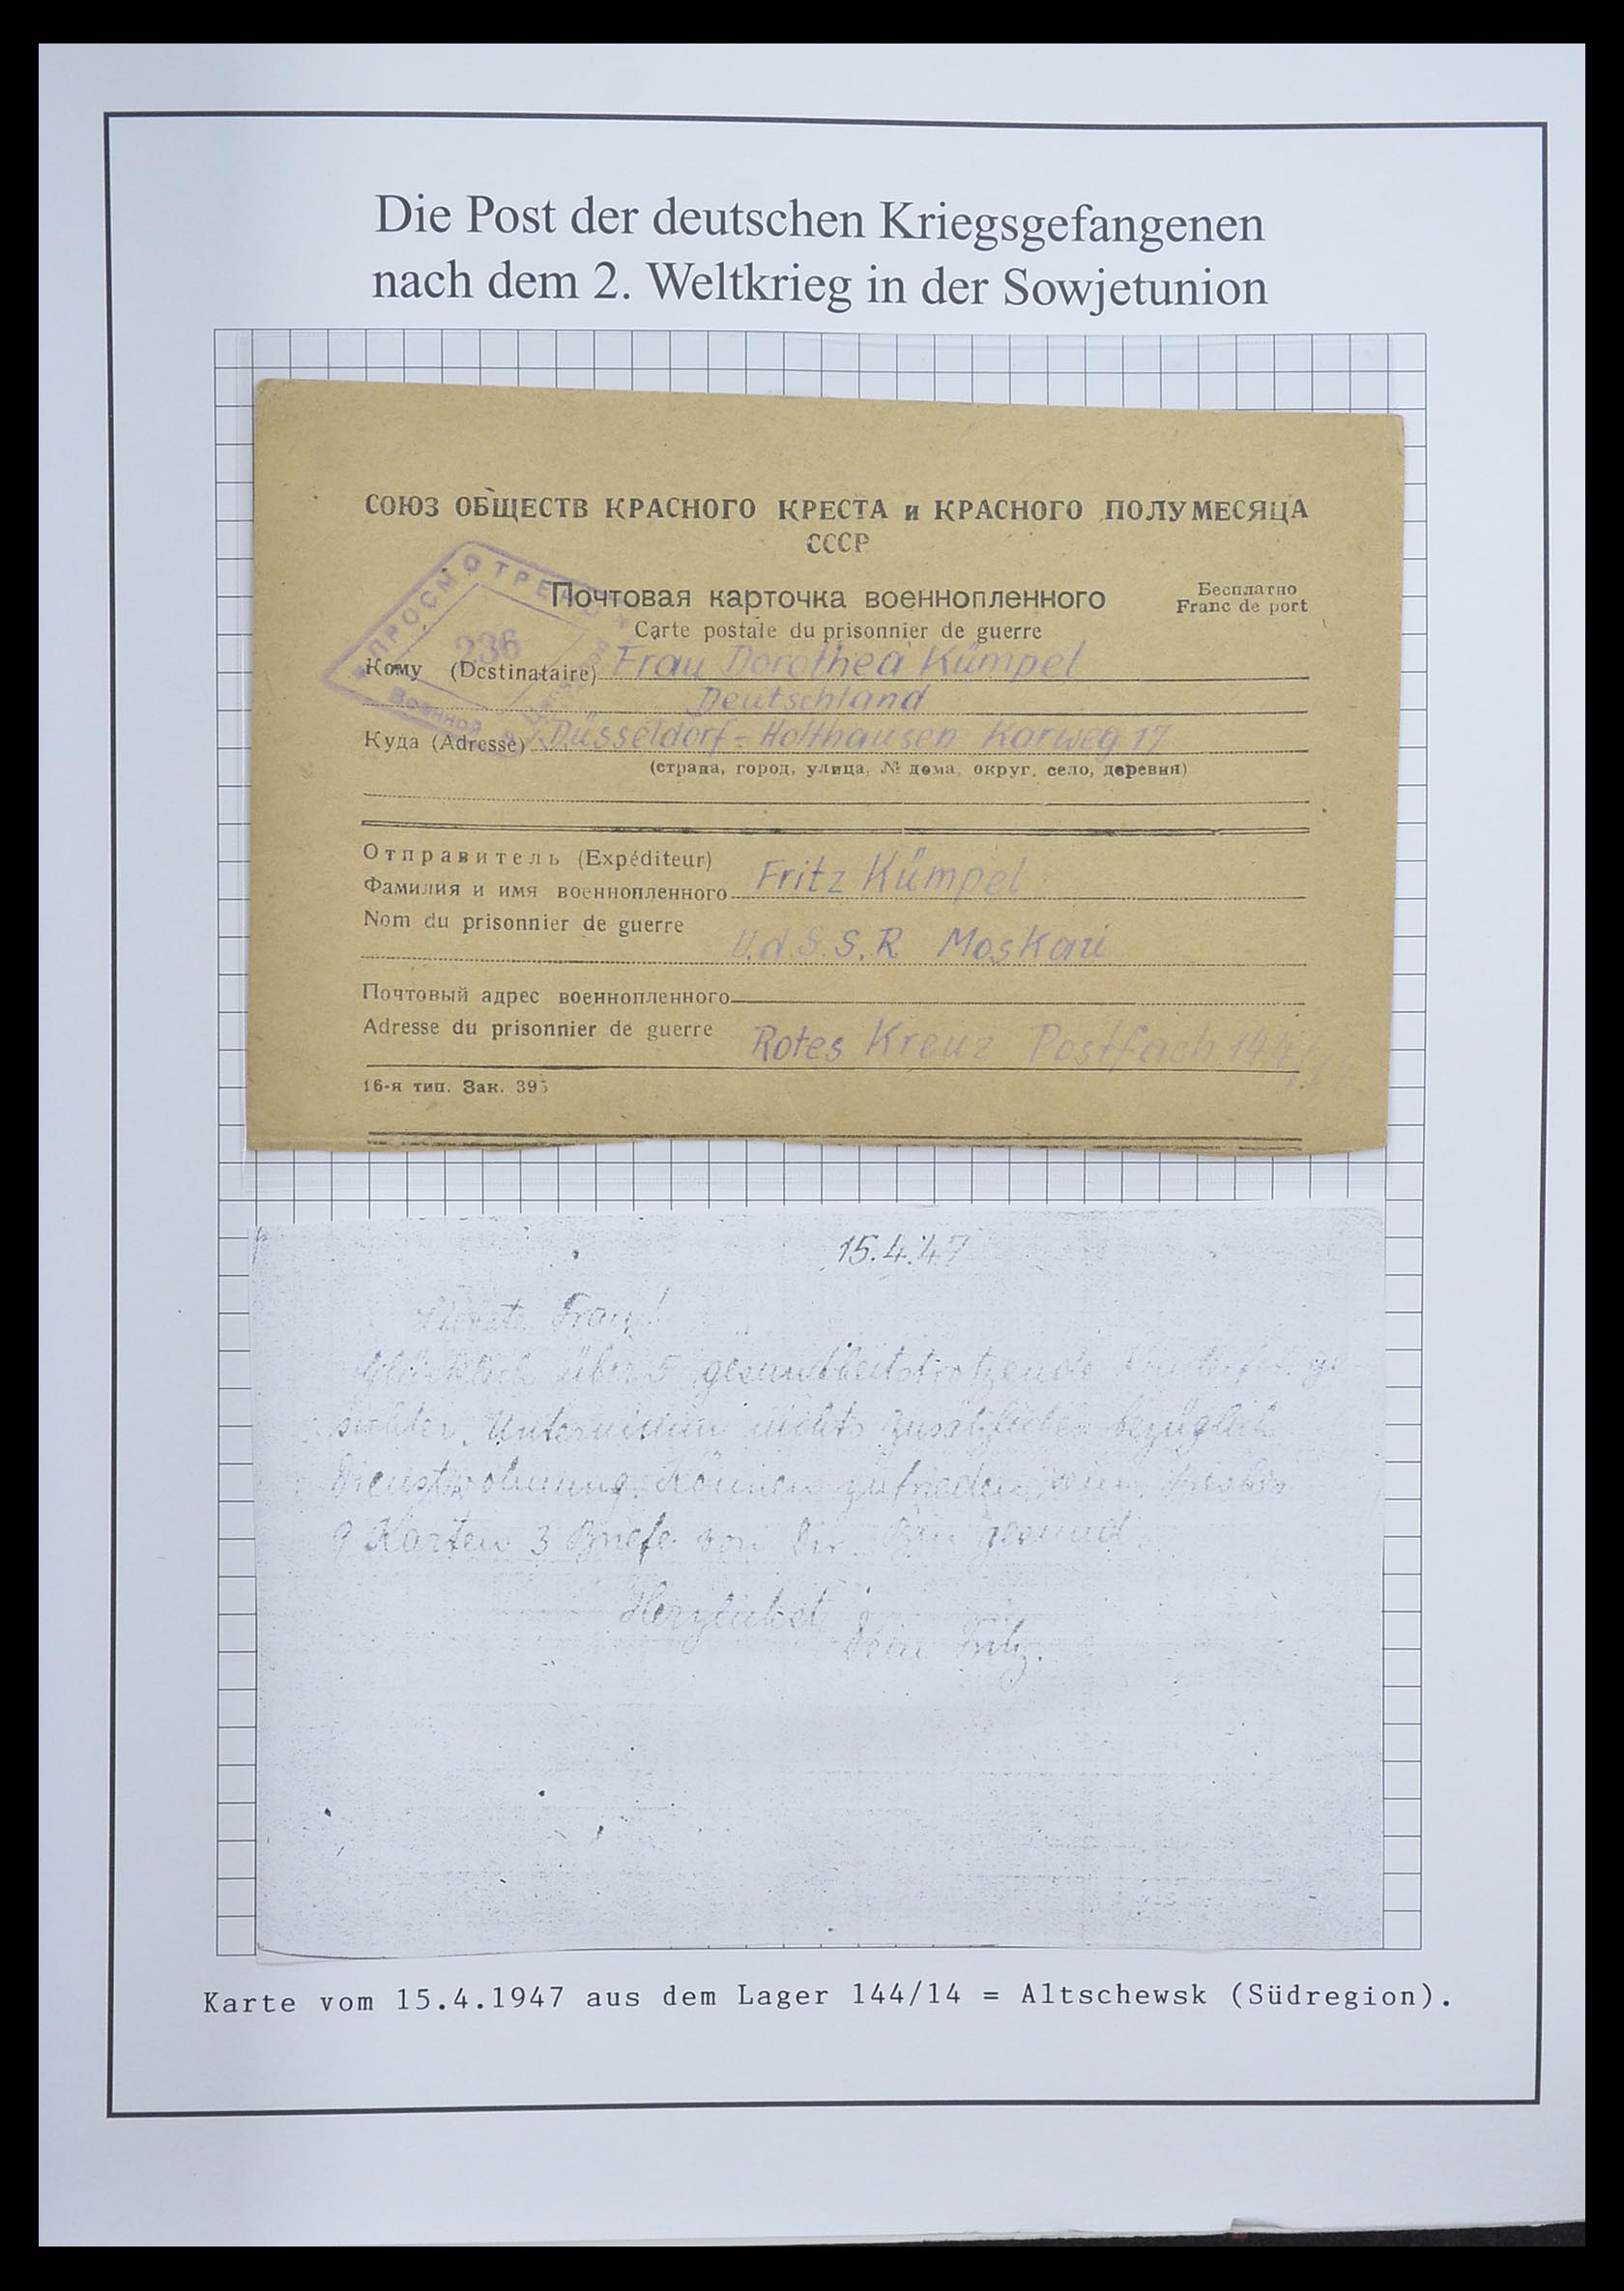 Die Post der deutschen Kriegsgefangenen
nach dem 2. Weltkrieg in der Sowjetunion
СОЮЗ ОБЩЕСТВ КРАСНОГО КРЕСТА и КРАСНОГО ПОЛУМЕСЯЦА
СССР
Почтовая карточка военнопленного
Бесплатно
Franc de port
Carte postale du prisonnier de guerre
ПРОСМОТРЕНО
236
Военной
Кому (Destinataire) Frau Dorothea Kümpel
Deutschland
Куда (Adresse) Düsseldorf-Holthausen Karweg 17
(страна, город, улица, № дома, округ, село, деревня)
Отправитель (Expéditeur)
Фамилия и имя военнопленного Fritz Kümpel
Nom du prisonnier de guerre
U.d.S.S.R Moskau
Почтовый адрес военнопленного
Adresse du prisonnier de guerre Rotes Kreuz Postfach 144/14
16-я тип. Зак. 395
15.4.47
Liebste Frau!
Glücklich über 5 gesundheitstrotzende
nichts zusätzliches bezüglich
Dienstwohnung. Können zufrieden sein.
9 Karten 3 Briefe von Dir. Bin gesund.
Herzlichst
Dein Fritz.
Karte vom 15.4.1947 aus dem Lager 144/14 = Altschewsk (Südregion).